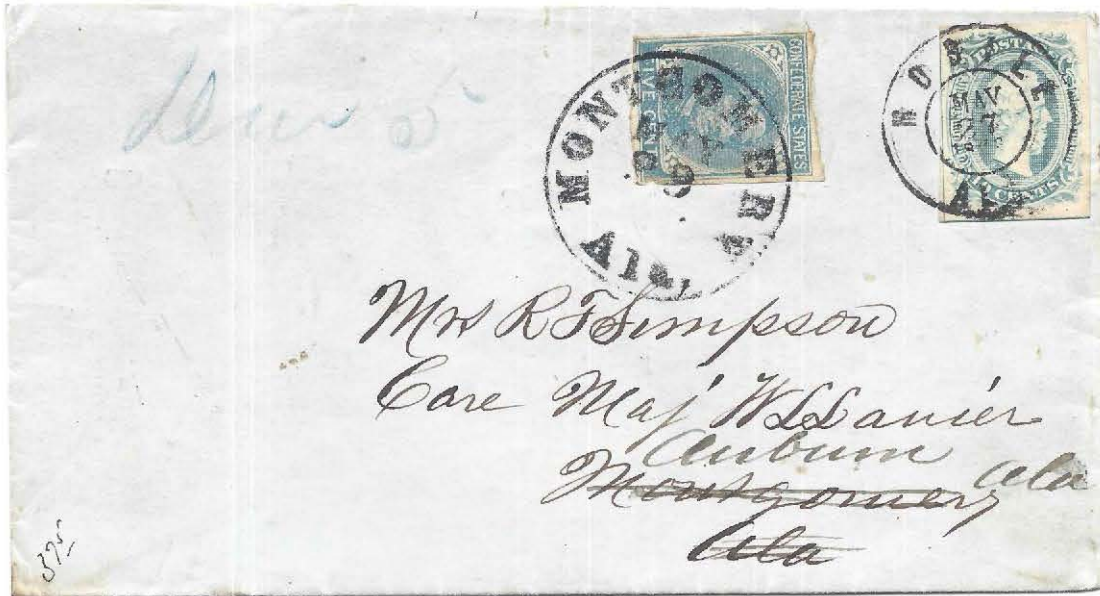 CONFEDERATE STATES
FIVE CENTS
MONTGOMERY
Ala.
MOBILE
MAY
AL
POSTAGE
CENTS
Mrs R F Simpson
Care Maj W L Lanier
Auburn
Ala
Montgomery
Ala
375